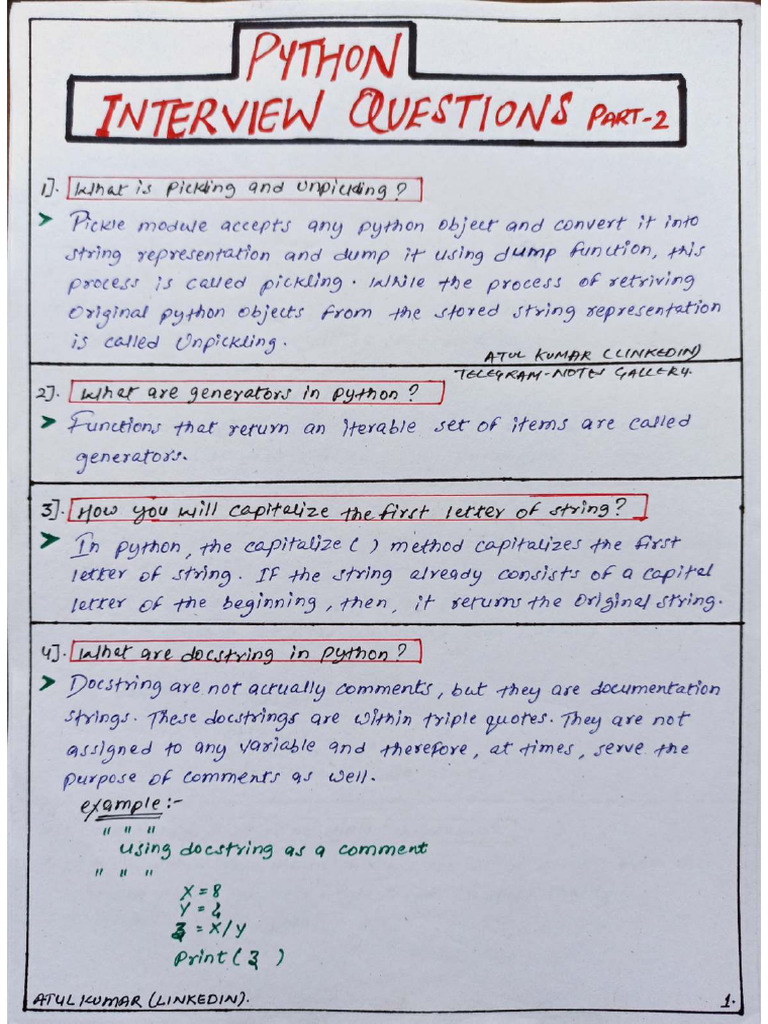 PYTHON
INTERVIEW QUESTIONS PART-2
1]. What is pickling and Unpickling?
Pickle module accepts any python object and convert it into
string representation and dump it using dump function, this
process is called pickling. While the process of retriving
original python objects from the stored string representation
is called Unpickling.
ATUL KUMAR (LINKEDIN)
TELEGRAM-NOTES GALLERY.
2]. What are generators in python?
Functions that return an iterable set of items are called
generators.
3]. How you will capitalize the first letter of string?
In python, the capitalize( ) method capitalizes the first
letter of string. If the string already consists of a capital
letter of the beginning, then, it returns the original string.
4]. What are docstring in python?
Docstring are not actually comments, but they are documentation
strings. These docstrings are within triple quotes. They are not
assigned to any variable and therefore, at times, serve the
purpose of comments as well.
example:-
" " "
Using docstring as a comment
" " "
X = 8
Y = 2
Z = X/Y
Print( Z )
ATUL KUMAR (LINKEDIN).
1.